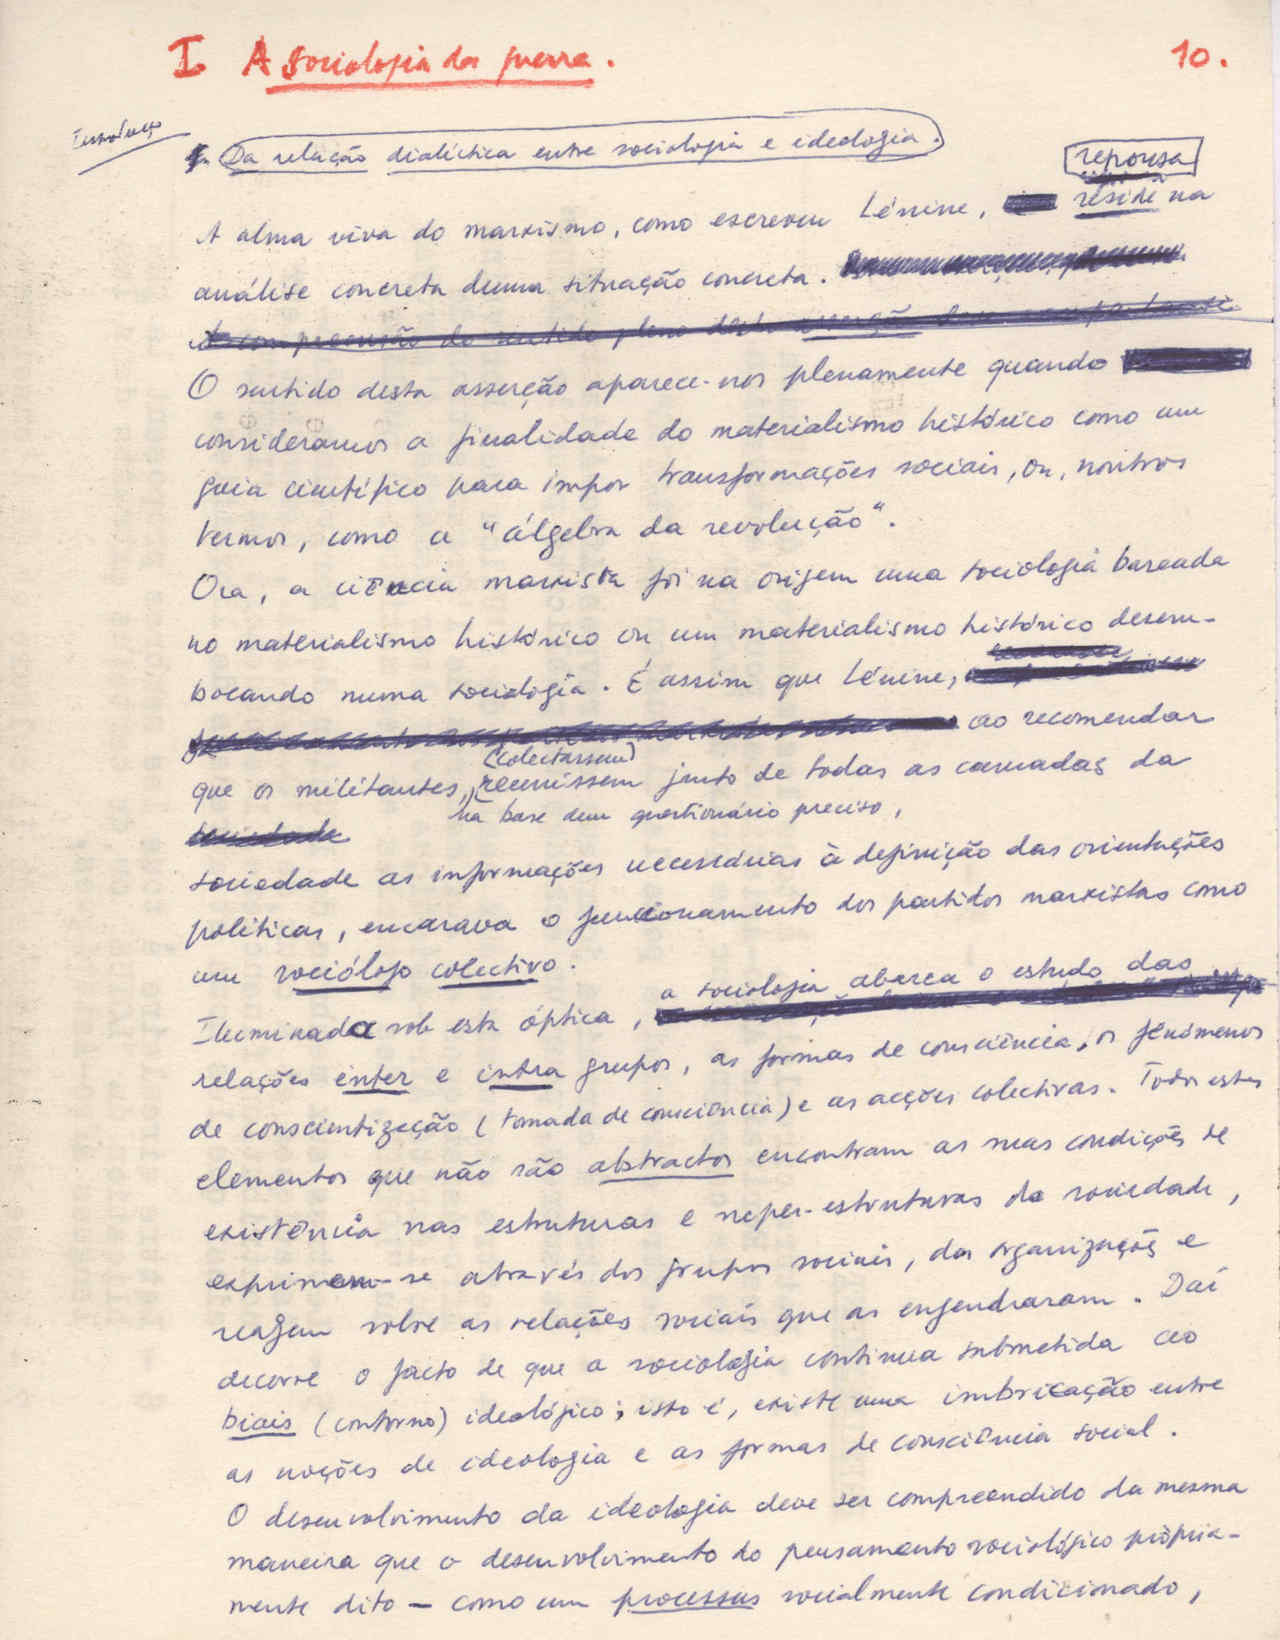 I A sociologia da guerra. 10.
Introdução
Da relação dialéctica entre sociologia e ideologia.
repousa
A alma viva do marxismo, como escreveu Lénine, reside na
análise concreta duma situação concreta.
A compreensão do sentido pleno desta asserção
O sentido desta asserção aparece-nos plenamente quando
consideramos a finalidade do materialismo histórico como um
guia científico para impor transformações sociais, ou, noutros
termos, como a "álgebra da revolução".
Ora, a ciência marxista foi na origem uma sociologia baseada
no materialismo histórico ou um materialismo histórico desem-
bocando numa sociologia. É assim que Lénine,
ao recomendar
(colectassem)
que os militantes, reunissem junto de todas as camadas da
na base dum questionário preciso,
sociedade
sociedade as informações necessárias à definição das orientações
políticas, encarava o funcionamento dos partidos marxistas como
um sociólogo colectivo.
a sociologia abarca o estudo das
Iluminada sob esta óptica,
relações inter e intra grupos, as formas de consciência, os fenómenos
de conscientização (tomada de consciência) e as acções colectivas. Todos estes
elementos que não são abstractos encontram as suas condições de
existência nas estruturas e super-estruturas da sociedade,
exprimem-se através dos grupos sociais, das organizações e
reagem sobre as relações sociais que as engendraram. Daí
decorre o facto de que a sociologia continua submetida ao
biais (contorno) ideológico; isto é, existe uma imbricação entre
as noções de ideologia e as formas de consciência social.
O desenvolvimento da ideologia deve ser compreendido da mesma
maneira que o desenvolvimento do pensamento sociológico pròpria-
mente dito – como um processus socialmente condicionado,